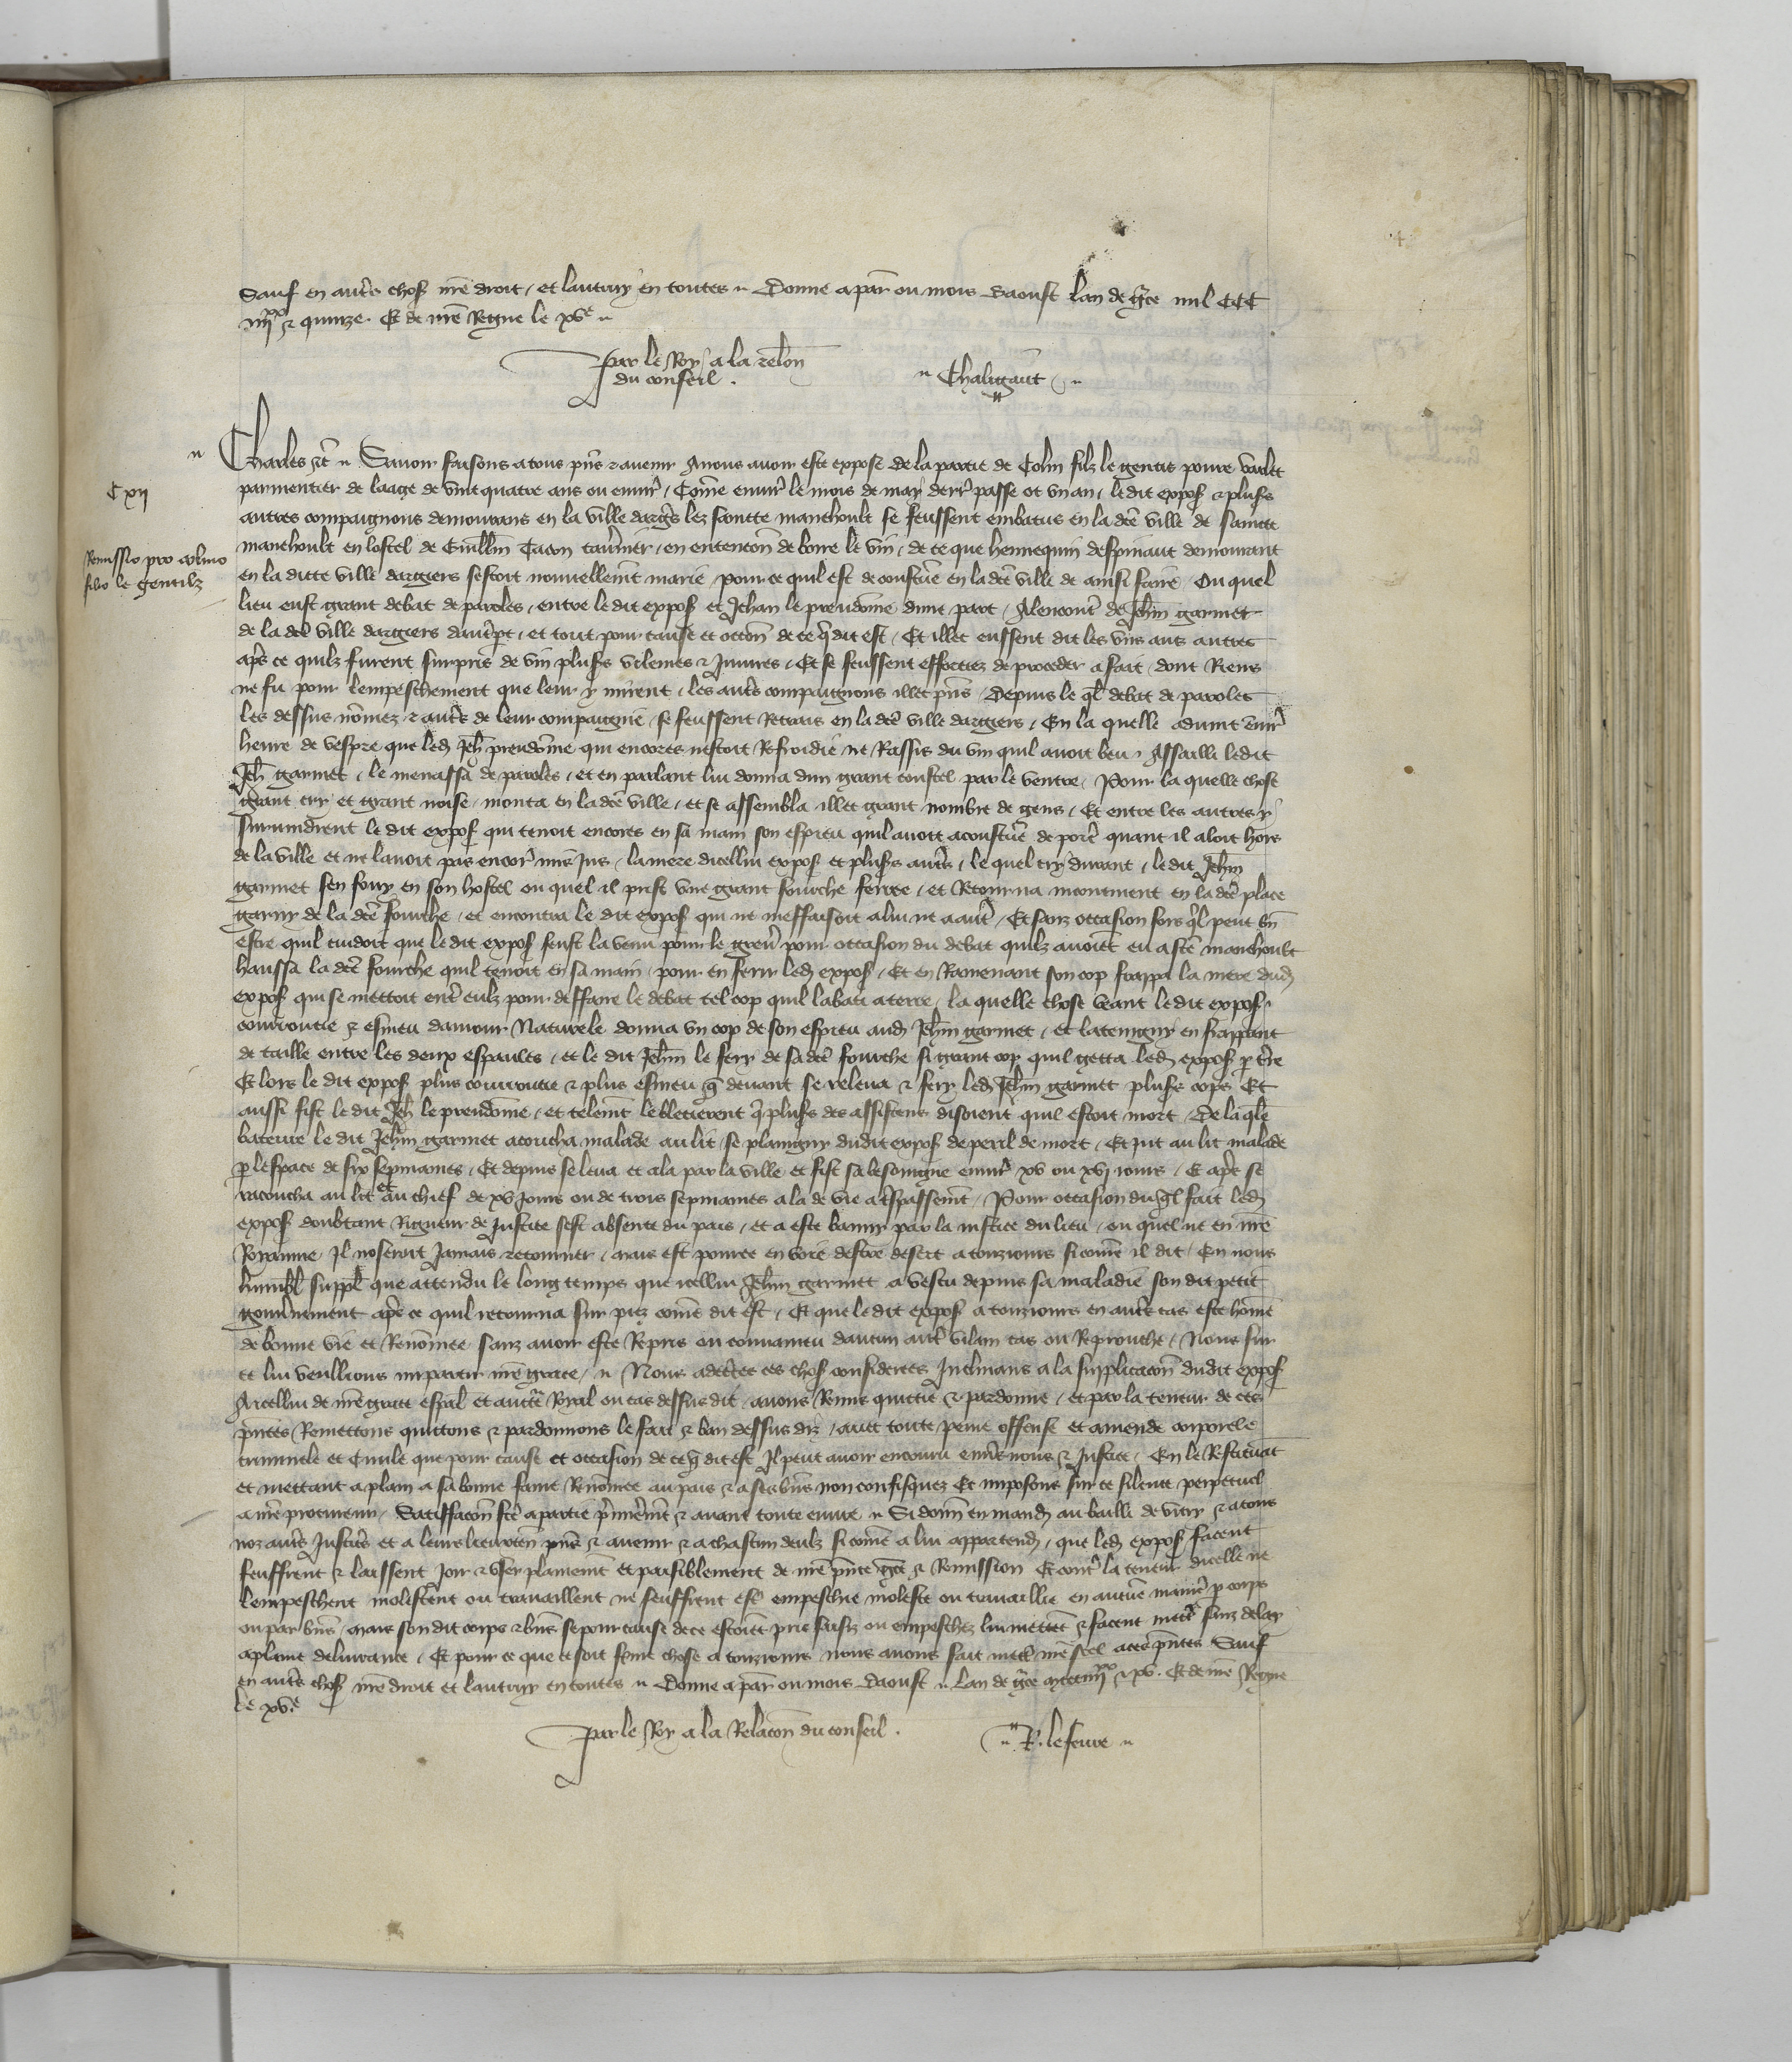 Sauf en autres choses nre droit, et lautruy en toutes. Donne a par ou mois daoust lan de grce mil CCC
iiijxx & quinze. Et de nre Regne le xve
Par le Roy a la relon
du conseil.
Chaligaut
Charles etc Savoir faisons a tous pns & avenir A nous avoir este expose de la partie de Colin filz le gentit povre varlet
Cxij
parmentier de laage de vint quatre ans ou envir, Come envir le mois de may derr passe ot un an, ledit expos & plus
autres compaignons demourans en la ville dargrs lez saincte manehoult se feussent embatus en la dce ville de saincte
Remissio pro colino
filio le gentilz
manehoult en lostel de Guillm Tacon tavrnier, en entencon de boire le vin, de ce que hennequin despinaut demourant
en la dicte ville dargiers sestoit nouvellemt marie pour ce quil est de coustue en la dce ville de ainsi faire Ou quel
lieu eust grant debat de paroles, entre le dit expos et Jehan le preudome dune part, Alencontr de Jehin garmet
de la dce ville dargiers dautre pt, et tout pour cause et occon de ce q dit est, Et illec eussent dit les uns aus autres
aps ce quilz furent surpris de vin plus vilenies & Injures, Et se feussent efforciez de proceder a fait, dont Riens
ne fu pour lempeschement que leur y mirent, les autrs compaignons illec pns, Depuis le ql debat de paroles
les dessus nomez & autrs de leur compaignie, se feussent Retrais en la dce ville dargiers, En la quelle advint envir
heure de vespre que led Jeh preudome qui encores nestoit Refroidie ne Rassis du vin quil avoit beu, Assailli ledit
Jeh garmet, le menassa de paroles, et en parlant lui donna dun grant coustel par le ventre, Pour la quelle chose
grant cry et grant noise, monta en la dce ville, et se assembla illec grant nombre de gens, Et entre les autres y
survindrent le dit expos qui tenoit encores en sa main son espieu quil avoit acoustue de portr quant il aloit hors
de la ville et ne lavoit pas encor mis jus, la mere dicellui expos et plus autrs, le quel cry durant, le dit Jehin
garmet sen fouy en son hostel ou quel il prist une grant fourche ferree, et Retourna incontinent en la dce place
garny de la dce fourche, et encontra le dit expos qui ne meffaisoit a lui ne a autr, Et sanz occasion fors ql peut bn
estre quil cuidoit que le dit expos feust la venu pour le grev pour occasion du debat quilz avoiet eu a sce manehoult
haussa la dce fourche quil tenoit en sa main, pour en ferir led expos, Et en Ramenant son cop frappa la mere dud
expos qui se mettoit entr eulz pour deffaire le debat tel cop quil labati a terre, la quelle chose veant le dit expos
courroucie & esmeu damour Naturele donna un cop de son espieu aud Jehin garmet, et lataingny en frappant
de taille entre les deux espaules, et le dit Jehin le fery de sa dce fourche si grant cop quil getta led expos p tre
Et lors le dit expos plus courroucie & plus esmeu q devant se releva & fery led Jehin garmet plus cops Et
aussi fist le dit Jeh le preudome, et telemt le blecierent q plus des assistens disoient quil estoit mort, De laqle
bateure le dit Jehin garmet acoucha malade au lit, se plaingny dudit expos de peril de mort, Et jut au lit malade
p lespace de six sepmaines, Et depuis se leva et ala par la ville et fist sa besoingne envir xv ou xvj jours, & aps se
racoucha au lit et au chief de xv jours ou de trois sepmaines ala de vie a trspassemt, Pour occasion du ql fait led
expos doubtant Rigueur de Justice sest absente du pais, et a este banny par la justice du lieu, ou quel ne en nre
Royaume Il noseroit Jamais retourner, mais est povrce en voie destre desert a tousjours si come il dit, En nous
humbl suppl que attendu le long temps que icellui Jehin garmet a vescu depuis sa maladie son dit petit
gouvrnement aps ce quil retourna sur piez come dit est, Et que le dit expos a tousjours en autrs cas este home
de bonne vie et Renomee sanz avoir este Repris ou convaincu daucun autr vilain cas ou Reprouche, Nous sur
ce lui veullions impartir nre grace, Nous adctes ces chos considerees Inclinans a la supplicacon dudit expos
A icellui de nre grace espal et aucte Royal ou cas dessus dit, avons Remis quictie & pardonne, et par la teneur de ces
pntes Remettons quictons & pardonnons le fait & ban dessus diz, avec toute peine offense et amende corporele
criminele et Civile que pour cause et occasion de ce q dit est Il peut avoir encouru envrs nous & Justice, En le Restituat
et mettant a plain a sa bonne fame Renomee au pais & a ses bns non confisquez Et imposons sur ce silence perpetuel
a nre procureur, Satisfacon fce a partie prmieremt & avant toute euvre Si donn en mand au bailli de vitry & a tous
noz autrs Justicrs et a leurs lieuxten pns & avenir & a chascun deulz si come a lui appartend, que led expos facent
seuffrent & laissent joir & user plainemt et paisiblement de nre pnte gce & Remission Et contr la teneur dicelle ne
lempeschent molestent ou travaillent ne seuffrent estr empeschie moleste ou travaillie en aucue manie p corps
ou par bns, mais son dit corps & bns se pour cause de ce estoiet pris saisiz ou empeschez lui mettet & facent mettr sanz delay
a plaine delivrance, Et pour ce que ce soit ferme chose a tousjours nous avons fait mettr nre scel a ces pntes Sauf
en autrs chos nre droit et lautruy en toutes Donne a par ou mois Daoust Lan de gce mccciiijxx & xv. Et de nre Regne
le xve
Par le Roy a la Relacon du conseil.
P. lefevre